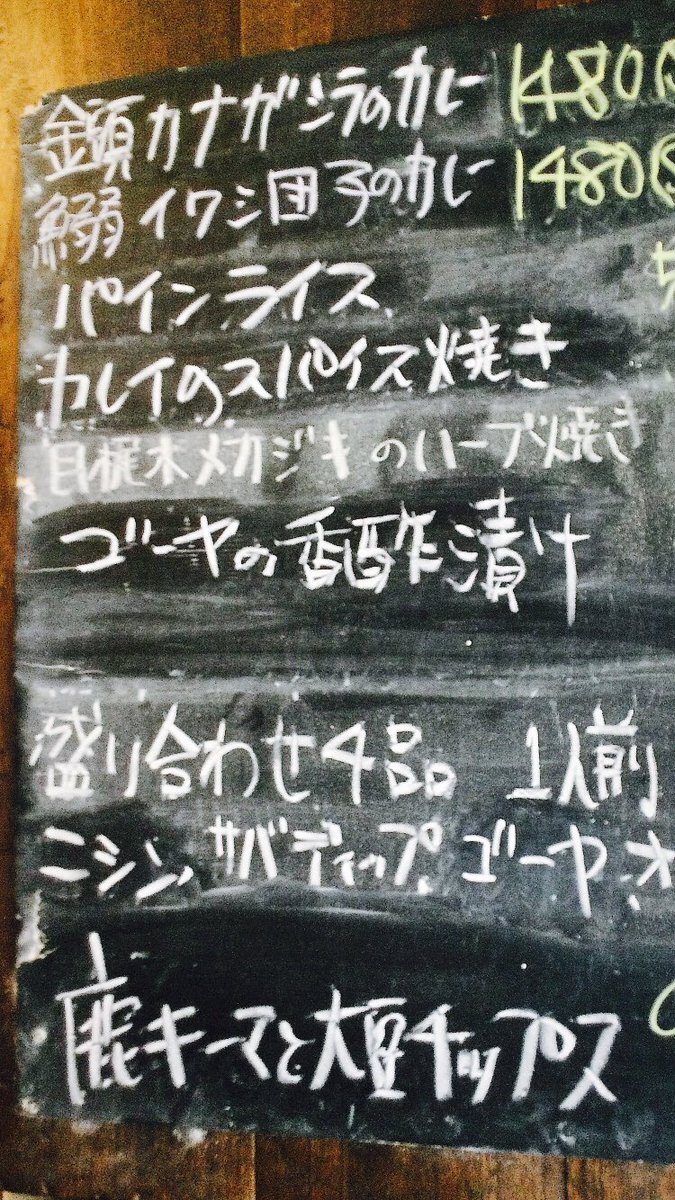 金頭カナガシラのカレー 1480
鰯イワシ団子のカレー 1480
パインライス
カレイのスパイス焼き
目梶木メカジキのハーブ焼き
ゴーヤの香酢漬け
盛り合わせ4品 1人前
ニシン、サバディップ、ゴーヤ、
鹿キーマと大豆チップス